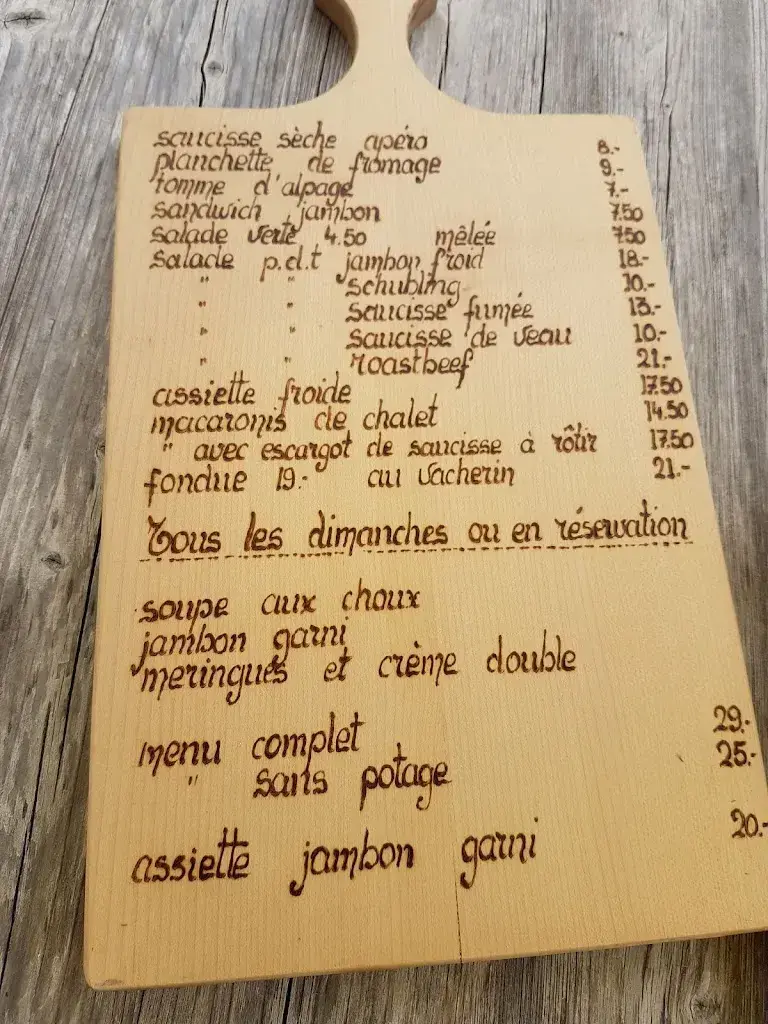 saucisse sèche apéro 8.-
planchette de fromage 9.-
tomme d'alpage 7.-
sandwich jambon 7.50
salade verte 4.50 mêlée 7.50
salade p.d.t jambon froid 18.-
" " schubling 10.-
" " saucisse fumée 13.-
" " saucisse de veau 10.-
" " roastbeef 21.-
assiette froide 17.50
macaronis de chalet 14.50
" avec escargot de saucisse à rôtir 17.50
fondue 19.- au vacherin 21.-
Tous les dimanches ou en réservation
soupe aux choux
jambon garni
meringues et crème double
menu complet 29.-
" sans potage 25.-
assiette jambon garni 20.-